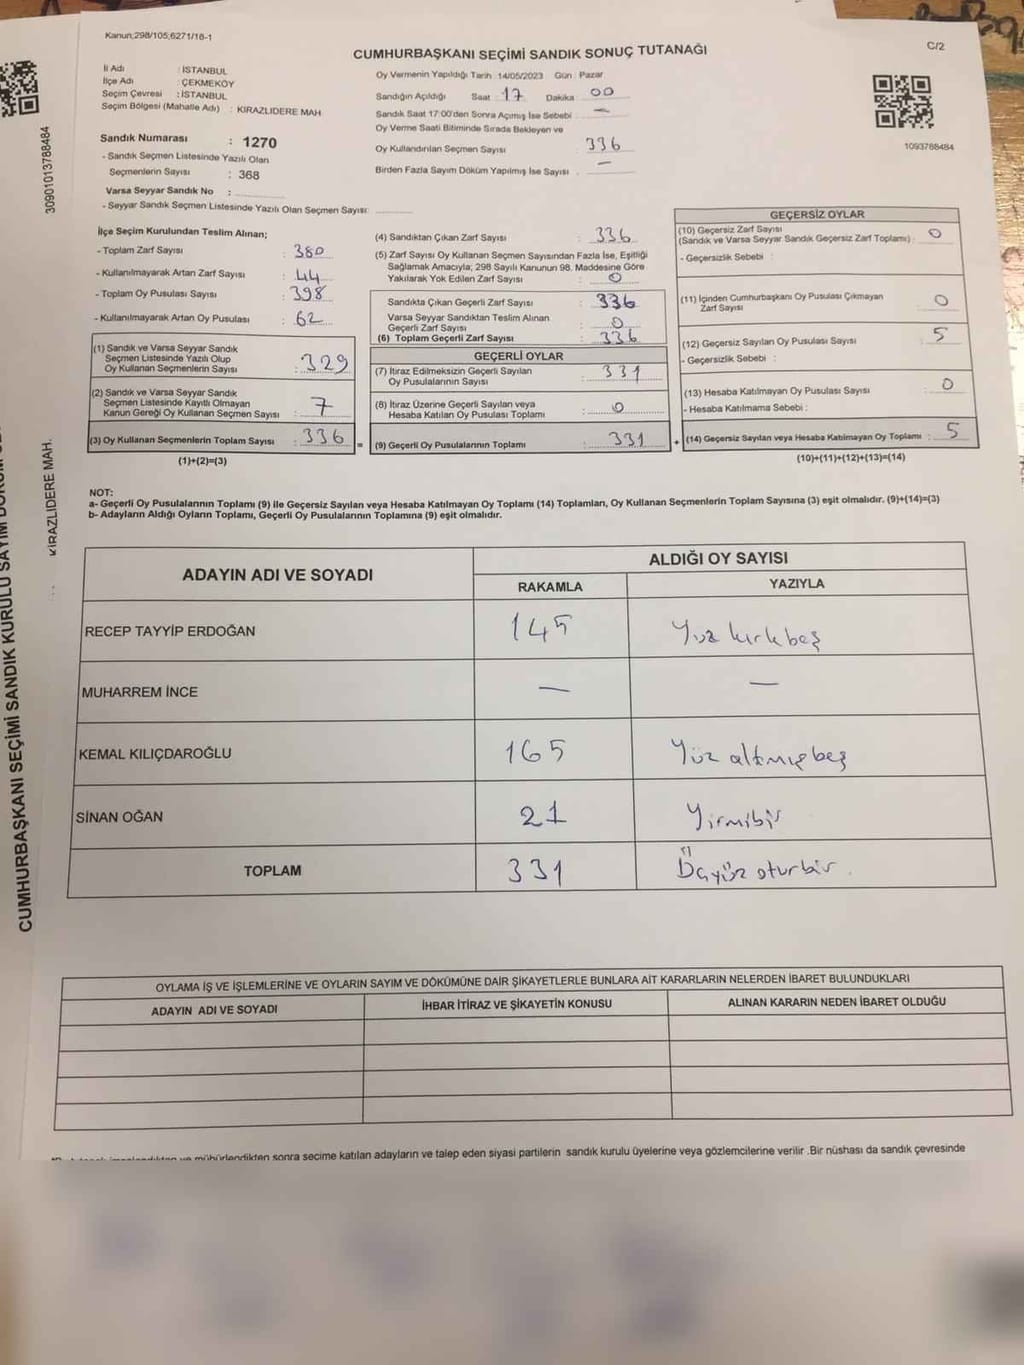 Kanun;298/105;6271/18-1
C/2
CUMHURBAŞKANI SEÇİMİ SANDIK SONUÇ TUTANAĞI
İl Adı : İSTANBUL
İlçe Adı : ÇEKMEKÖY
Seçim Çevresi : İSTANBUL
Seçim Bölgesi (Mahalle Adı) : KIRAZLIDERE MAH
Sandık Numarası : 1270
- Sandık Seçmen Listesinde Yazılı Olan
Seçmenlerin Sayısı : 368
Varsa Seyyar Sandık No :
- Seyyar Sandık Seçmen Listesinde Yazılı Olan Seçmen Sayısı:
Oy Vermenin Yapıldığı Tarih 14/05/2023 Gün : Pazar
Sandığın Açıldığı Saat 17 Dakika 00
Sandık Saat 17:00'den Sonra Açımış İse Sebebi : —
Oy Verme Saati Bitiminde Sırada Bekleyen ve
Oy Kullandırılan Seçmen Sayısı : 336
Birden Fazla Sayım Döküm Yapılmış İse Sayısı : —
1093788484
30901013788484
KİRAZLIDERE MAH.
İlçe Seçim Kurulundan Teslim Alınan;
- Toplam Zarf Sayısı : 380
- Kullanılmayarak Artan Zarf Sayısı : 44
- Toplam Oy Pusulası Sayısı : 398
- Kullanılmayarak Artan Oy Pusulası : 62
(1) Sandık ve Varsa Seyyar Sandık
Seçmen Listesinde Yazılı Olup
Oy Kullanan Seçmenlerin Sayısı : 329
(2) Sandık ve Varsa Seyyar Sandık
Seçmen Listesinde Kayıtlı Olmayan
Kanun Gereği Oy Kullanan Seçmen Sayısı : 7
(3) Oy Kullanan Seçmenlerin Toplam Sayısı : 336
(1)+(2)=(3)
(4) Sandıktan Çıkan Zarf Sayısı : 336
(5) Zarf Sayısı Oy Kullanan Seçmen Sayısından Fazla İse, Eşitliği
Sağlamak Amacıyla; 298 Sayılı Kanunun 98. Maddesine Göre
Yakılarak Yok Edilen Zarf Sayısı : 0
Sandıkta Çıkan Geçerli Zarf Sayısı : 336
Varsa Seyyar Sandıktan Teslim Alınan
Geçerli Zarf Sayısı : 0
(6) Toplam Geçerli Zarf Sayısı : 336
GEÇERLİ OYLAR
(7) İtiraz Edilmeksizin Geçerli Sayılan
Oy Pusulalarının Sayısı : 331
(8) İtiraz Üzerine Geçerli Sayılan veya
Hesaba Katılan Oy Pusulası Toplamı : 0
= (9) Geçerli Oy Pusulalarının Toplamı : 331
GEÇERSİZ OYLAR
(10) Geçersiz Zarf Sayısı
(Sandık ve Varsa Seyyar Sandık Geçersiz Zarf Toplamı) : 0
- Geçersizlik Sebebi :
(11) İçinden Cumhurbaşkanı Oy Pusulası Çıkmayan
Zarf Sayısı : 0
(12) Geçersiz Sayılan Oy Pusulası Sayısı : 5
- Geçersizlik Sebebi :
(13) Hesaba Katılmayan Oy Pusulası Sayısı : 0
- Hesaba Katılmama Sebebi :
+ (14) Geçersiz Sayılan veya Hesaba Katılmayan Oy Toplamı : 5
(10)+(11)+(12)+(13)=(14)
NOT:
a- Geçerli Oy Pusulalarının Toplamı (9) ile Geçersiz Sayılan veya Hesaba Katılmayan Oy Toplamı (14) Toplamları, Oy Kullanan Seçmenlerin Toplam Sayısına (3) eşit olmalıdır. (9)+(14)=(3)
b- Adayların Aldığı Oyların Toplamı, Geçerli Oy Pusulalarının Toplamına (9) eşit olmalıdır.
ADAYIN ADI VE SOYADI
ALDIĞI OY SAYISI
RAKAMLA YAZIYLA
RECEP TAYYİP ERDOĞAN 145 Yüz kırkbeş
MUHARREM İNCE — —
KEMAL KILIÇDAROĞLU 165 Yüz altmışbeş
SİNAN OĞAN 21 Yirmibir
TOPLAM 331
OYLAMA İŞ VE İŞLEMLERİNE VE OYLARIN SAYIM VE DÖKÜMÜNE DAİR ŞİKAYETLERLE BUNLARA AİT KARARLARIN NELERDEN İBARET BULUNDUKLARI
ADAYIN ADI VE SOYADI İHBAR İTİRAZ VE ŞİKAYETİN KONUSU ALINAN KARARIN NEDEN İBARET OLDUĞU
mühürlendikten sonra seçime katılan adayların ve talep eden siyasi partilerin sandık kurulu üyelerine veya gözlemcilerine verilir .Bir nüshası da sandık çevresinde
CUMHURBAŞKANI SEÇİMİ SANDIK KURULU SAYIM